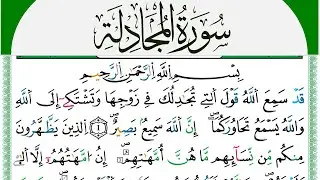 سُورَةُ المُجَادلَةِ
بِسْمِ اللَّهِ الرَّحْمَٰنِ الرَّحِيمِ
قَدْ سَمِعَ اَللَّهُ قَوْلَ اَلتِے تُجَٰدِلُكَ فِے زَوْجِهَا وَتَشْتَكِےٓ إِلَى اَللَّهِ
وَاللَّهُ يَسْمَعُ تَحَاوُرَكُمَآ إِنَّ اَللَّهَ سَمِيعٌۢ بَصِيرٌ ١ اَلذِينَ يَظَّهَّرُونَ
مِنكُم مِّن نِّسَآئِهِم مَّا هُنَّ أُمَّهَٰتِهِمْ إِنْ أُمَّهَٰتُهُمْ إِلَّا